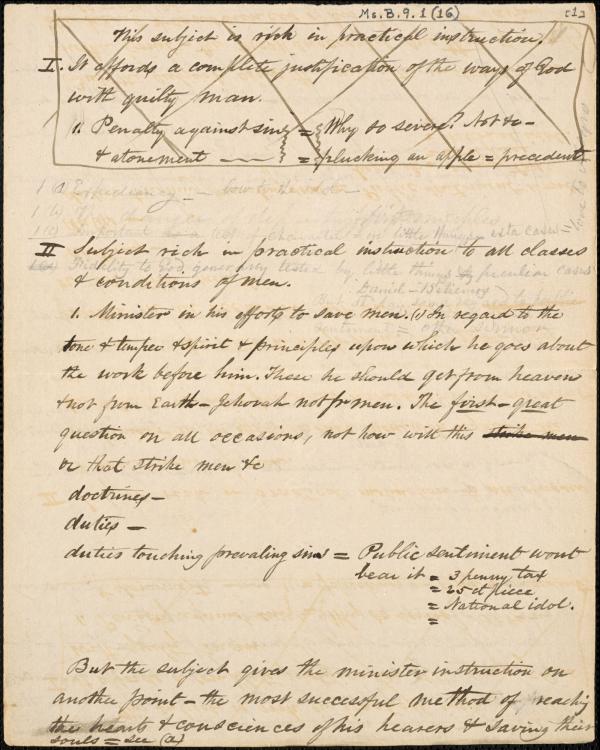 Ms. B. 9. 1 (16) [1]
This subject is rich in practical instruction.
I. It affords a complete justification of the ways of God
with guilty man.
1. Penalty against sin = Why so severe? Not &c -
& atonement —— = plucking an apple = precedent
1 (a) Expediency —
1 (b)
1 (c) Important
II Subject rich in practical instruction to all classes
Fidelity to God, generally tested by little things & peculiar cases
& conditions of men.
Daniel -
1. Minister in his efforts to save men. (1) In regard to the
tone & temper & spirit & principles upon which he goes about
the work before him. These he should get from heaven
& not from Earth - Jehovah not fr men. The first - great
question on all occasions, not how will this strike men
or that strike men &c
doctrines -
duties -
duties touching prevaling sins = Public sentiment wont
bear it = 3 penny tax
= 25 ct piece
= National idol.
=
But the subject gives the minister instruction on
another point - the most successful method of reaching
the hearts & consciences of his hearers & saving their
souls = see (a)